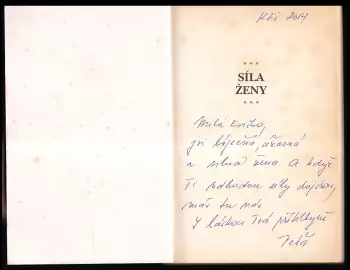 2014
* * *
SÍLA
ŽENY
* * *
Milá Evičko,
jsi báječná, úžasná
a silná žena a když
Ti náhodou síly dojdou,
máš tu nás
S láskou Tvá